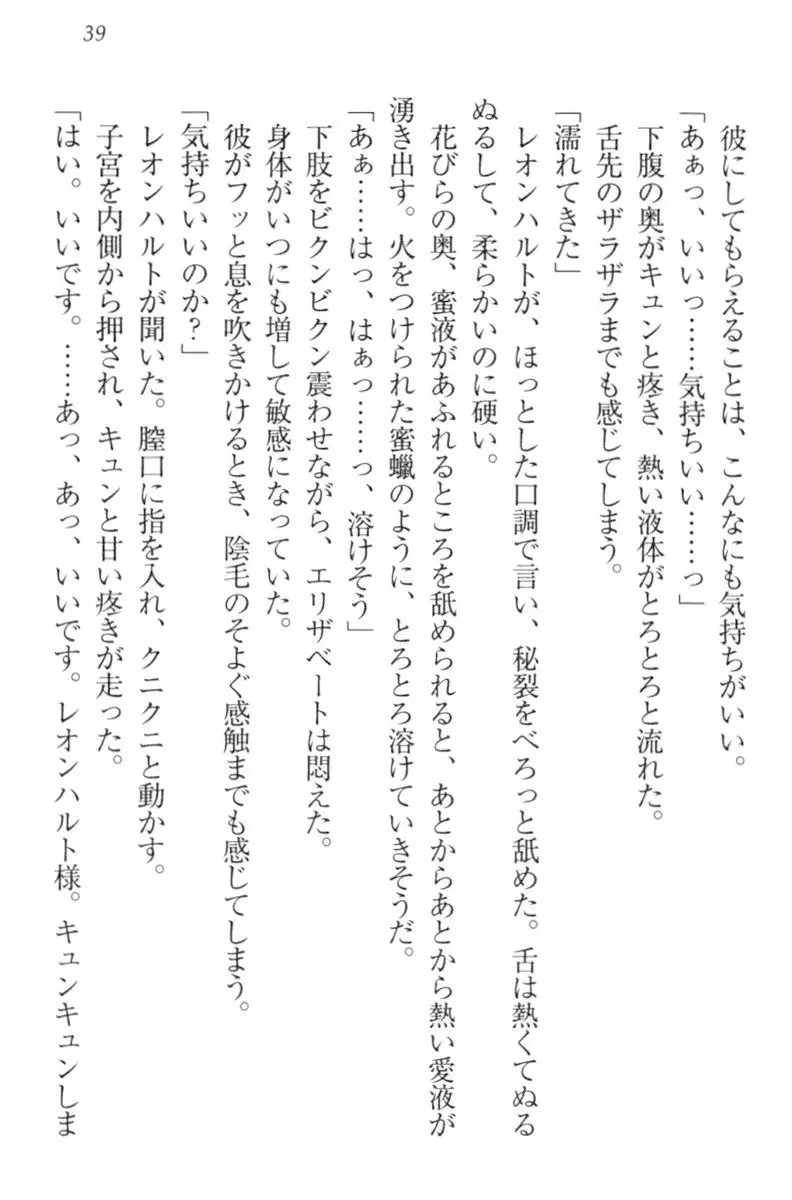 39
彼にしてもらえることは、こんなにも気持ちがいい。
「あぁっ、いいっ……気持ちいい……っ」
下腹の奥がキュンと疼き、熱い液体がとろとろと流れた。
舌先のザラザラまでも感じてしまう。
「濡れてきた」
レオンハルトが、ほっとした口調で言い、秘裂をべろっと舐めた。舌は熱くてぬる
ぬるして、柔らかいのに硬い。
花びらの奥、蜜液があふれるところを舐められると、あとからあとから熱い愛液が
湧き出す。火をつけられた蜜蠟のように、とろとろ溶けていきそうだ。
「あぁ……はっ、はぁっ……っ、溶けそう」
下肢をビクンビクン震わせながら、エリザベートは悶えた。
身体がいつにも増して敏感になっていた。
彼がフッと息を吹きかけるとき、陰毛のそよぐ感触までも感じてしまう。
「気持ちいいのか?」
レオンハルトが聞いた。膣口に指を入れ、クニクニと動かす。
子宮を内側から押され、キュンと甘い疼きが走った。
「はい。いいです。……あっ、あっ、いいです。レオンハルト様。キュンキュンしま